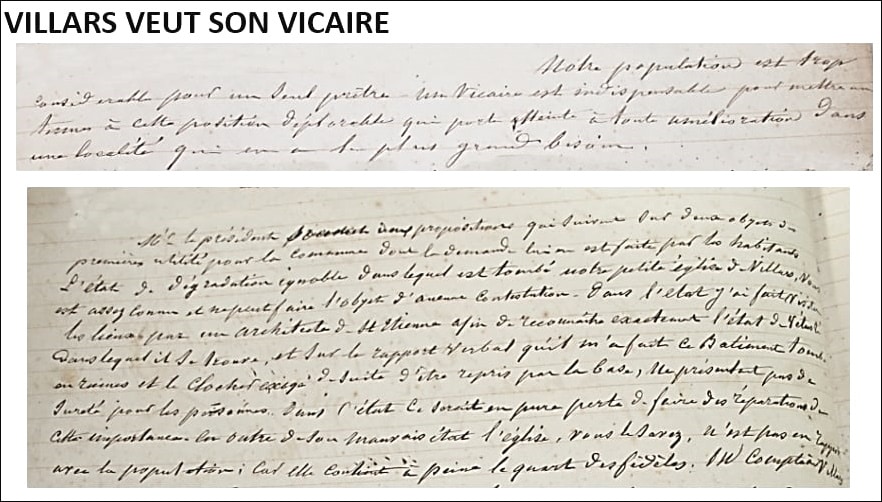 VILLARS VEUT SON VICAIRE
Notre population est trop
considerable pour un seul prêtre. Un Vicaire est indispensable pour mettre un
terme à cette position déplorable qui porte atteinte à toute amélioration dans
une localité qui en a le plus grand besoin.
Mr le président propositions qui suivent sur deux objets de
première utilité pour la commune dont la demande lui en est faite par les habitants
L'état de dégradation ignoble dans lequel est tombé notre petite église de Villars, Vous
est assez connu et ne peut faire l'objet d'aucune contestation. Dans l'état j'ai fait visiter
les lieux par un architecte de St Etienne afin de reconnaître exactement l'état de vétusté
dans lequel il se trouve, et sur le rapport verbal qu'il m'a fait ce Batiment tombe
en ruines et le clocher exige de suite d'être repris par la base, ne présentant pas de
sureté pour les personnes. Dans l'état ce serait en pure perte de faire des réparations de
cette importance. En outre de son mauvais état l'église, vous le savez, n'est pas en rapport
avec la population; car elle contient à peine le quart des fidèles. Villars